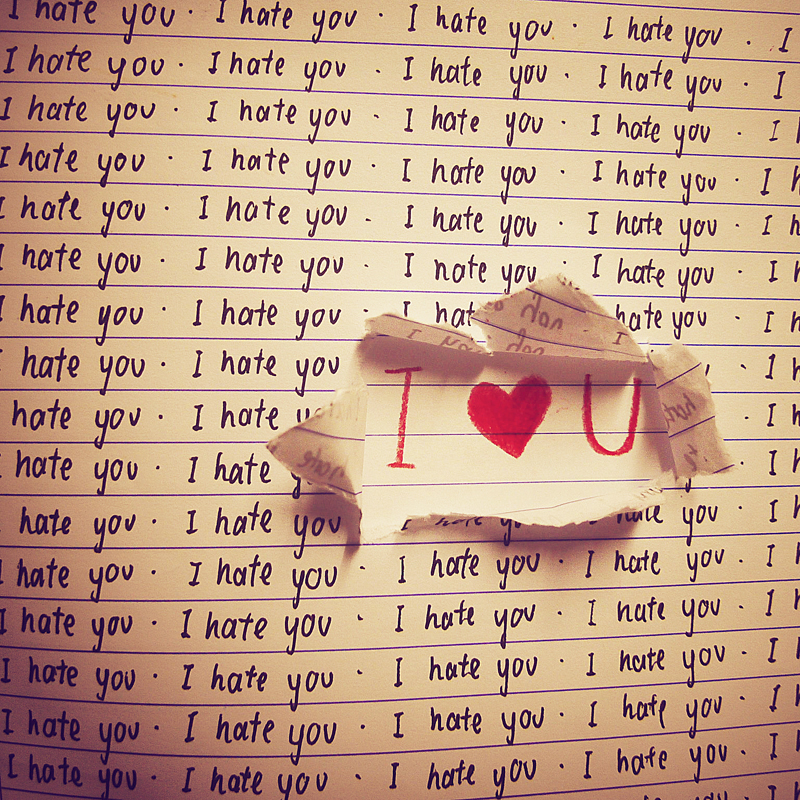 I hate you · I hate you · I hate you · I hate you · I
I hate you · I hate you · I hate you · I hate you · I
I hate you · I hate you · I hate you · I hate you · I h
I hate you · I hate you · I hate you · I hate you · I h
I hate you · I hate you · I hate you · I hate you · I h
I hate you · I hate you · I hate you · I hate you · I h
I hate you · I hate you · I hat hate you · I h
hate you · I hate you · I h
I ♥ U
hate you · I hate · I h
hate you · I hate · I h
hate you · I hate you I hate you · I h
I hate you · I hate you · I hate you · I hate you · I h
I hate you · I hate you · I hate you · I hate you · I h
I hate you · I hate you · I hate you · I hate you · I h
I hate you · I hate you · I hate you · I hate you · I h
I hate you · I hate you · I hate you · I hate you · I h